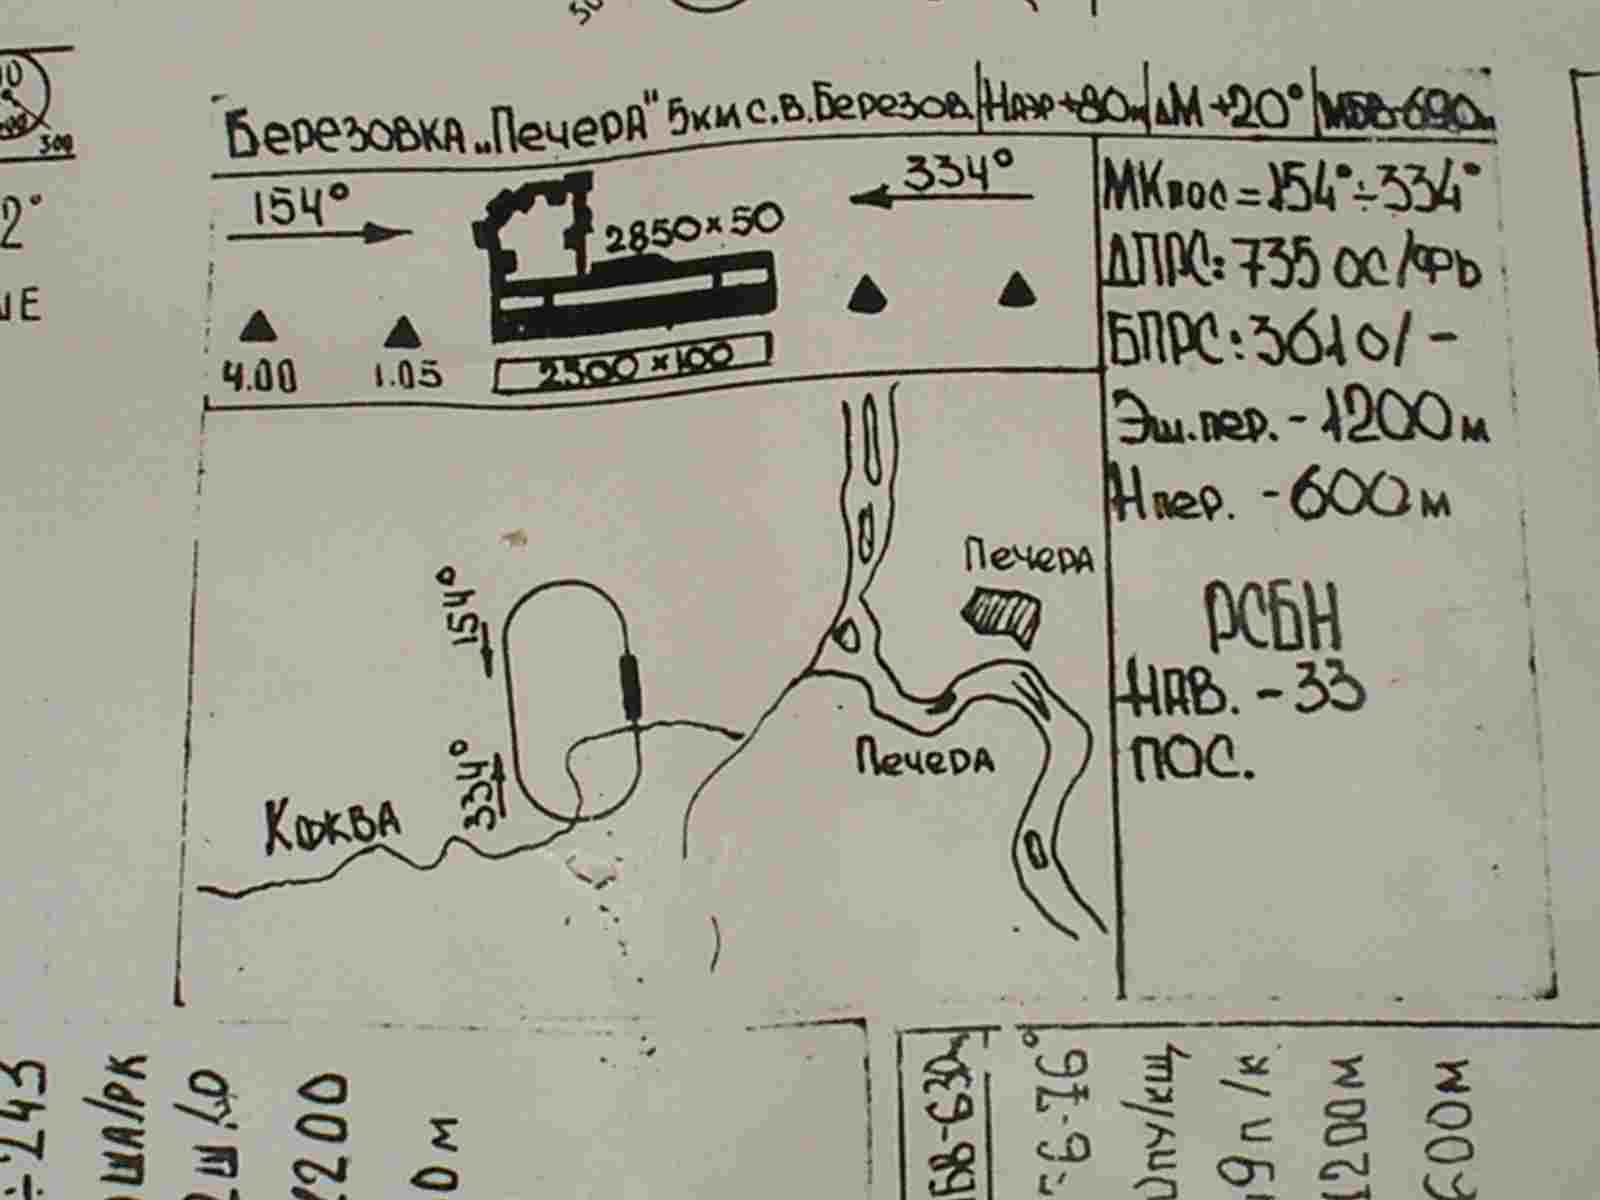 500
2°
Березовка „Печера" 5км С.В.Березов. Наэр +80м ΔМ +20° МБВ-690м
154°
334°
2850×50
4.00
1.05
2300×100
МКпос=154°÷334°
ДПРС: 735 ОС/ФЬ
БПРС: 361 О/-
Эш.пер. - 1200м
Нпер. - 600м
РСБН
НАВ. - 33
ПОС.
Печера
154°
334°
Печера
Кожва
÷243
ША/РК
Ш/О
1200
0м
БВ-630м
=6-76°
ПУ/КЩ
9П/К
1200м
600м